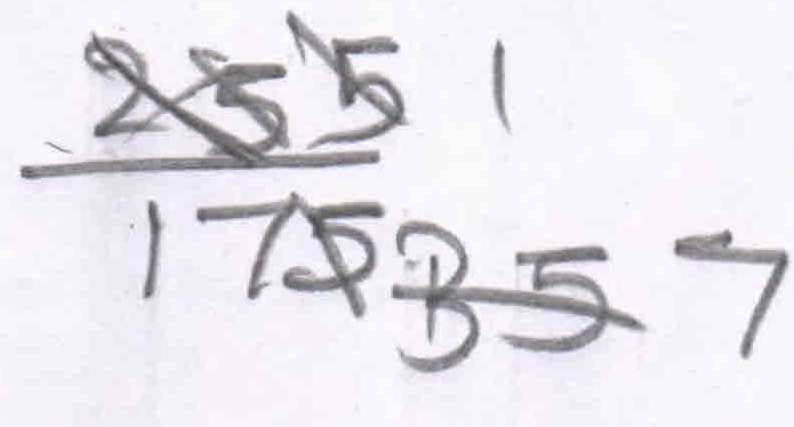 255 1
175 35 7